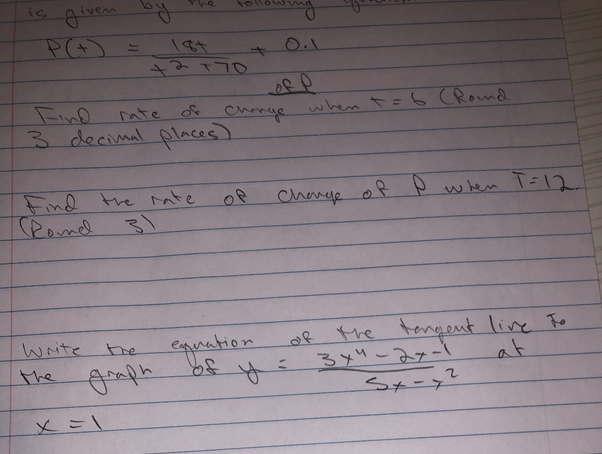 is given by the following
P(t) = 18t / t2 + 70 + 0.1
of P
Find rate of change when t = 6 (Round
3 decimal places)
Find the rate of change of P when T = 12
(Round 3)
Write the equation of the tangent line to
the graph of y = 3x^4 - 2x - 1 / 5x - x^2 at
x = 1